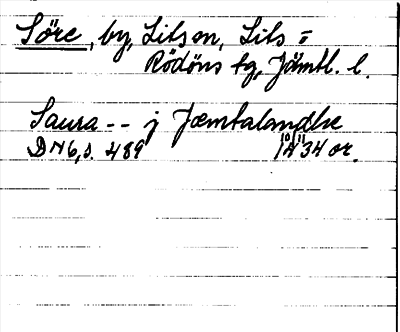 Söre, by, Litsn, Lits =
Rödöns tg, Jämtl. l.
Saura -- j Jæmtalandhe
DN 6, s. 489 10/11 1434 or.